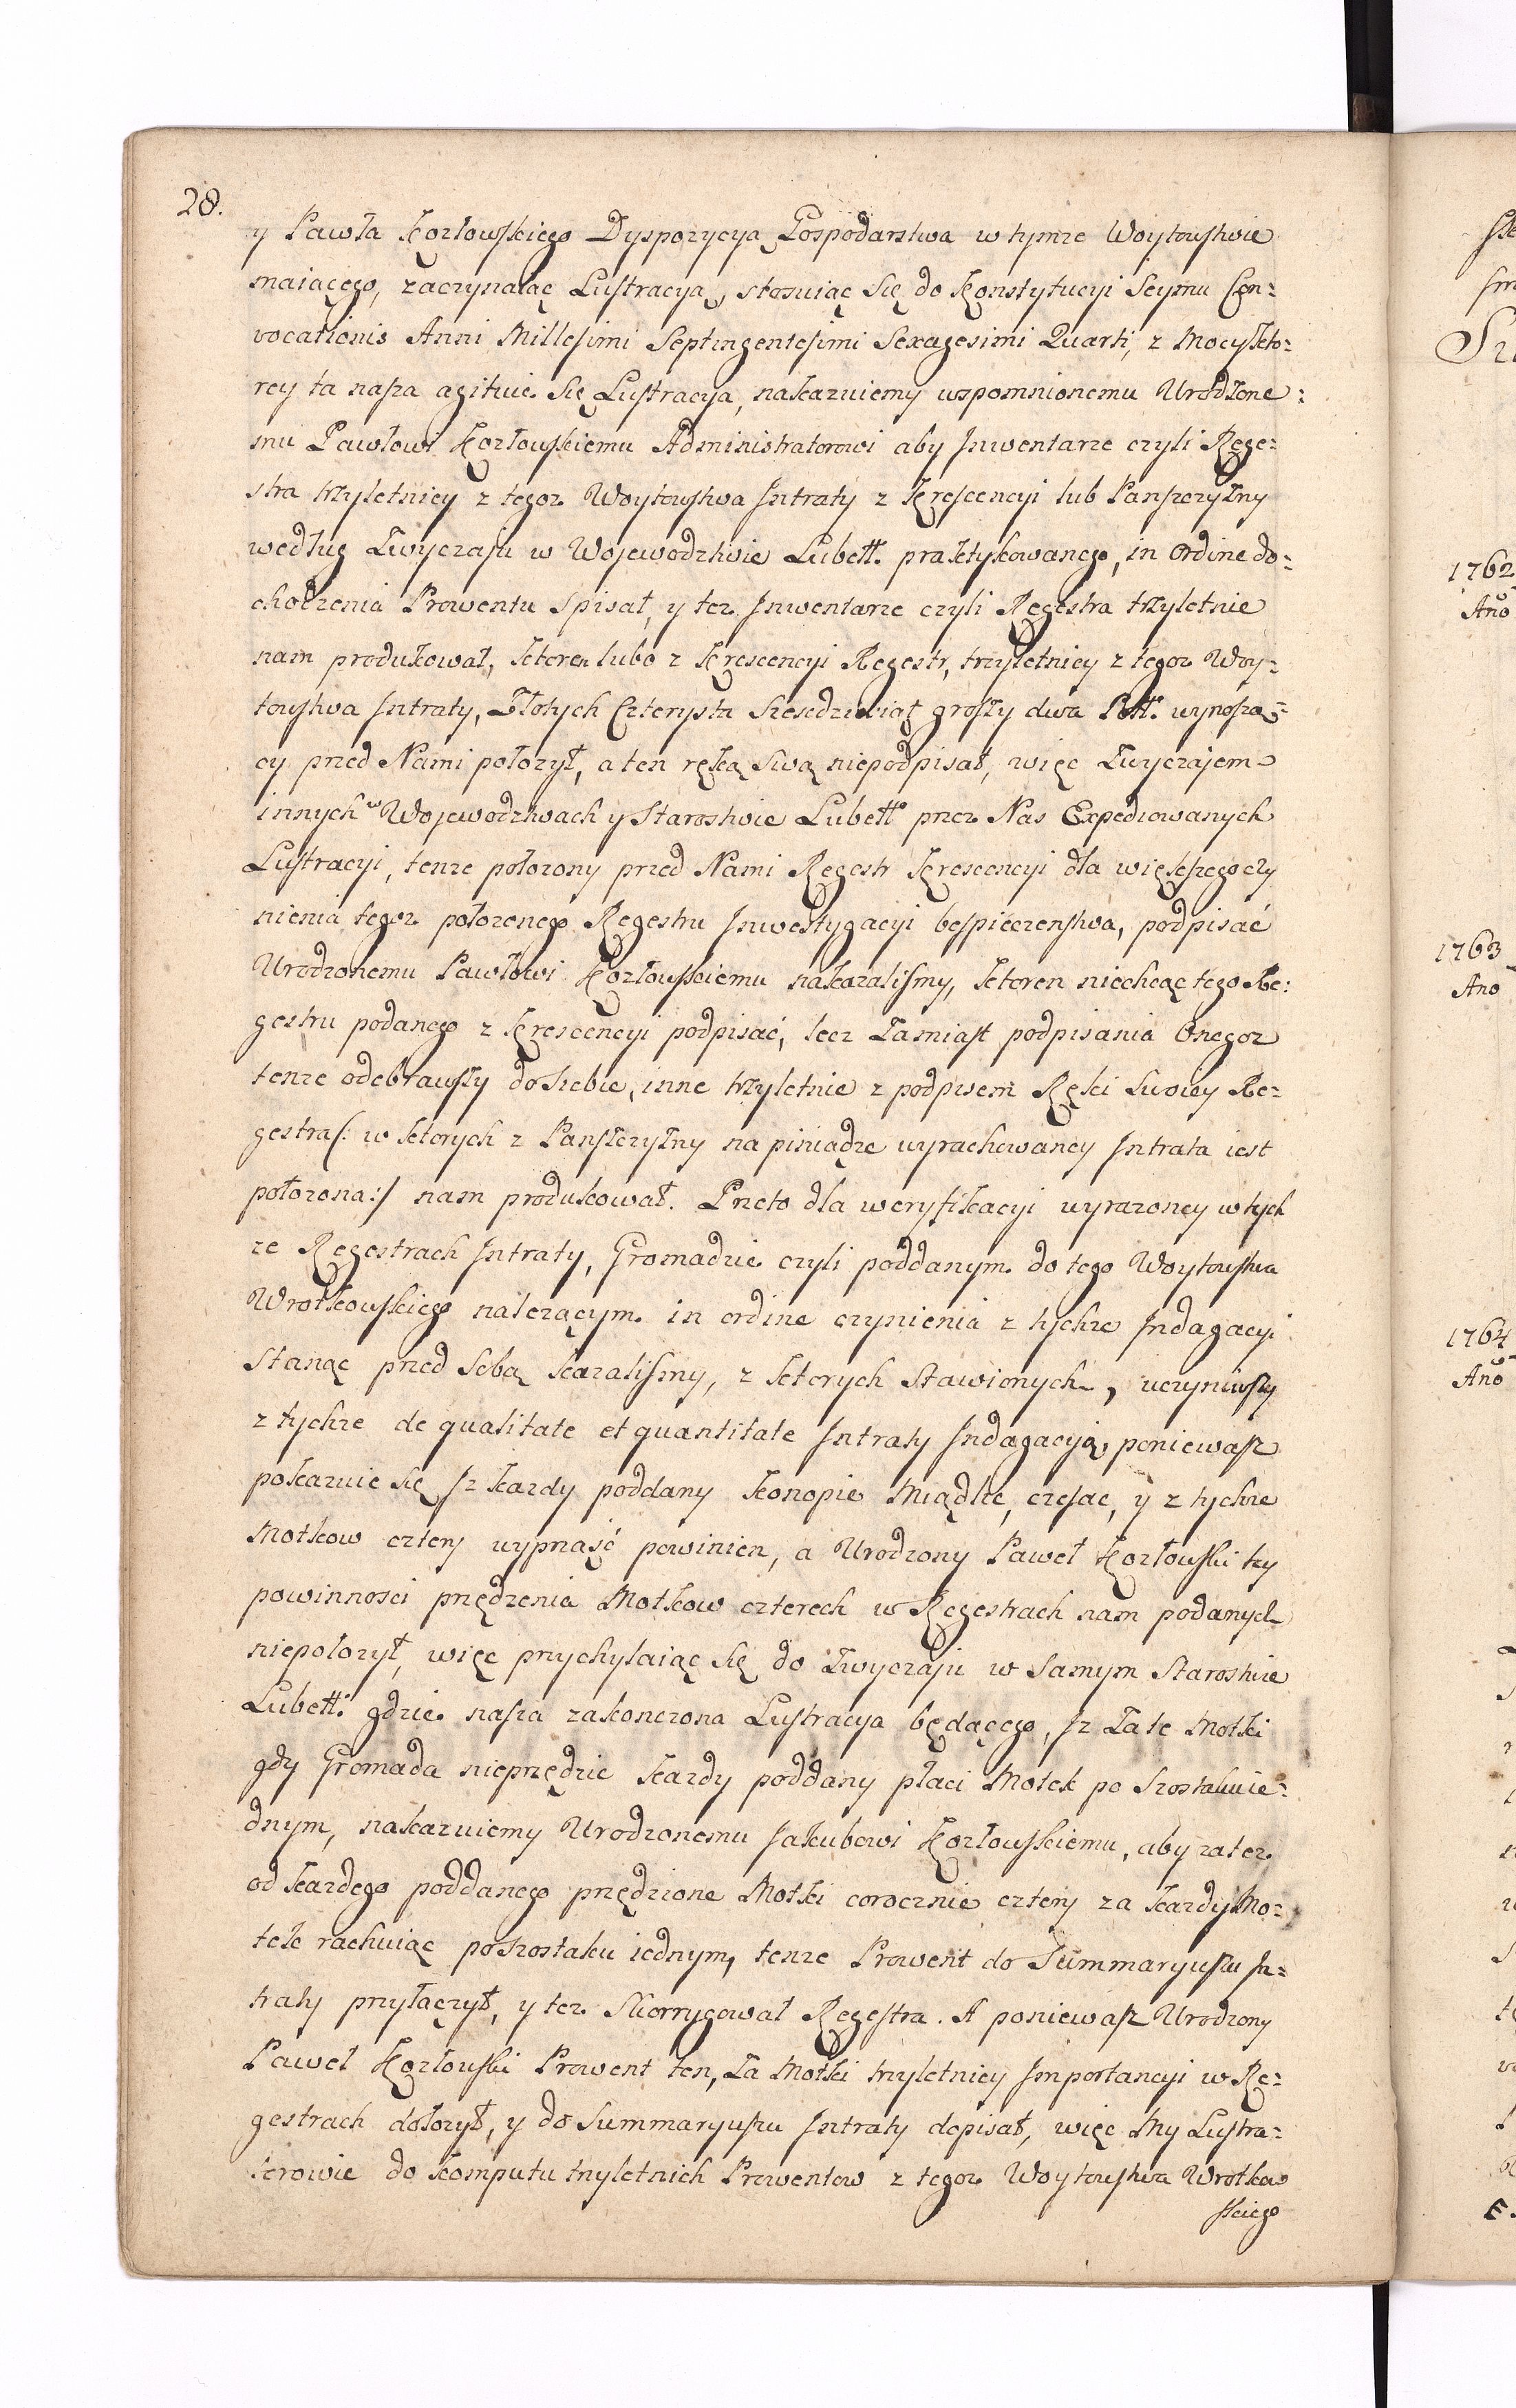 28.
y Pawła Kozłowskiego Dyspozycyą Gospodarstwa w tymze Woytowstwie
maiącego, zaczynaiąc Lustracyą, stosuiąc się do Konstytucyi Seymu Con-
vocationis Anni Millesimi Septingentesimi Sexagesimi Quarti, z Mocy kto-
rey ta nasza agituie się Lustracya, nakazuiemy wspomnionemu Urodzone:
mu Pawłowi Kozłowskiemu Administratorowi aby Inwentarze czyli Rege-
stra trzyletniey z tegoz Woytowstwa Intraty z Krescencyi lub Panszczyzny
według Zwyczaju w Wojewodztwie Lubell. praktykowanego, in Ordine do-
chodzenia Prowentu spisał, y tez Inwentarze czyli Regestra trzyletnie
nam produkował, ktoren lubo z Krescencyi Regestr, trzyletniey z tegoz Woy-
towstwa Intraty, Złotych Czterysta szescdziesiąt groszy dwa Poll. wynosząc-
cy przed Nami położył, a ten ręką swą niepodpisał, więc Zwyczajem
innych w Wojewodztwach y Starostwie Lubell. przez Nas Expediowanych
Lustracyi, tenze połozony przed Nami Regestr Krescencyi dla większego czy
nienia tegoz połozonego Regestru Inwestygacyi bespieczenstwa, podpisać
Urodzonemu Pawłowi Kozłowskiemu nakazaliśmy, ktoren niechcąc tego Re:
gestru podanego z Krescencyi podpisać, lecz Zamiast podpisania Onegoz
tenze odebrawszy do siebie, inne trzyletnie z podpisem Ręki Swoiey Re-
gestra /: w ktorych z Panszczyzny na piniądze wyrachowaney Intrata iest
połozona :/ nam produkował. Przeto dla weryfikacyi wyrazoney w tych
ze Regestrach Intraty, Gromadzie czyli poddanym do tego Woytowstwa
Wrotkowskiego nalezącym in ordine czynienia z tychze Indagacyi
Stanąc przed Sobą kazaliśmy, z ktorych Stawionych, uczyniwszy
z tychze de qualitate et quantitate Intraty Indagacyią, poniewasz
pokazuie się Iz kazdy poddany konopie Miądlic, czesac, y z tychze
Motkow cztery wyprząść powinien, a Urodzony Paweł Kozłowski tey
powinnosci przędzenia Motkow czterech w Regestrach nam podanych
niepołozył, więc przychylaiąc się do Zwyczaju w Samym Starostwie
Lubell. gdzie nasza zakonczona Lustracya będącego, Iz Za te Motki
gdy Gromada nieprzędzie kazdy poddany płaci Motek po Szostaku ie-
dnym, nakazuiemy Urodzonemu Jakubowi Kozłowskiemu, aby za tez
od kazdego poddanego przędzione Motki corocznie cztery za kazdy Mo-
tek rachuiąc po szostaku iednym, tenze Prowent do Summaryuszu In-
traty przyłączył, y tez Skorrygował Regestra. A poniewasz Urodzony
Paweł Kozłowski Prowent ten, Za Motki trzyletniey Importancyi w Re-
gestrach dołozył, y do Summaryuszu Intraty dopisał, więc My Lustra-
torowie do komputu trzyletnich Prowentow z tegoz Woytowstwa Wrotkow
skiego
1762
Ano
1763
Ano
1764
Ano